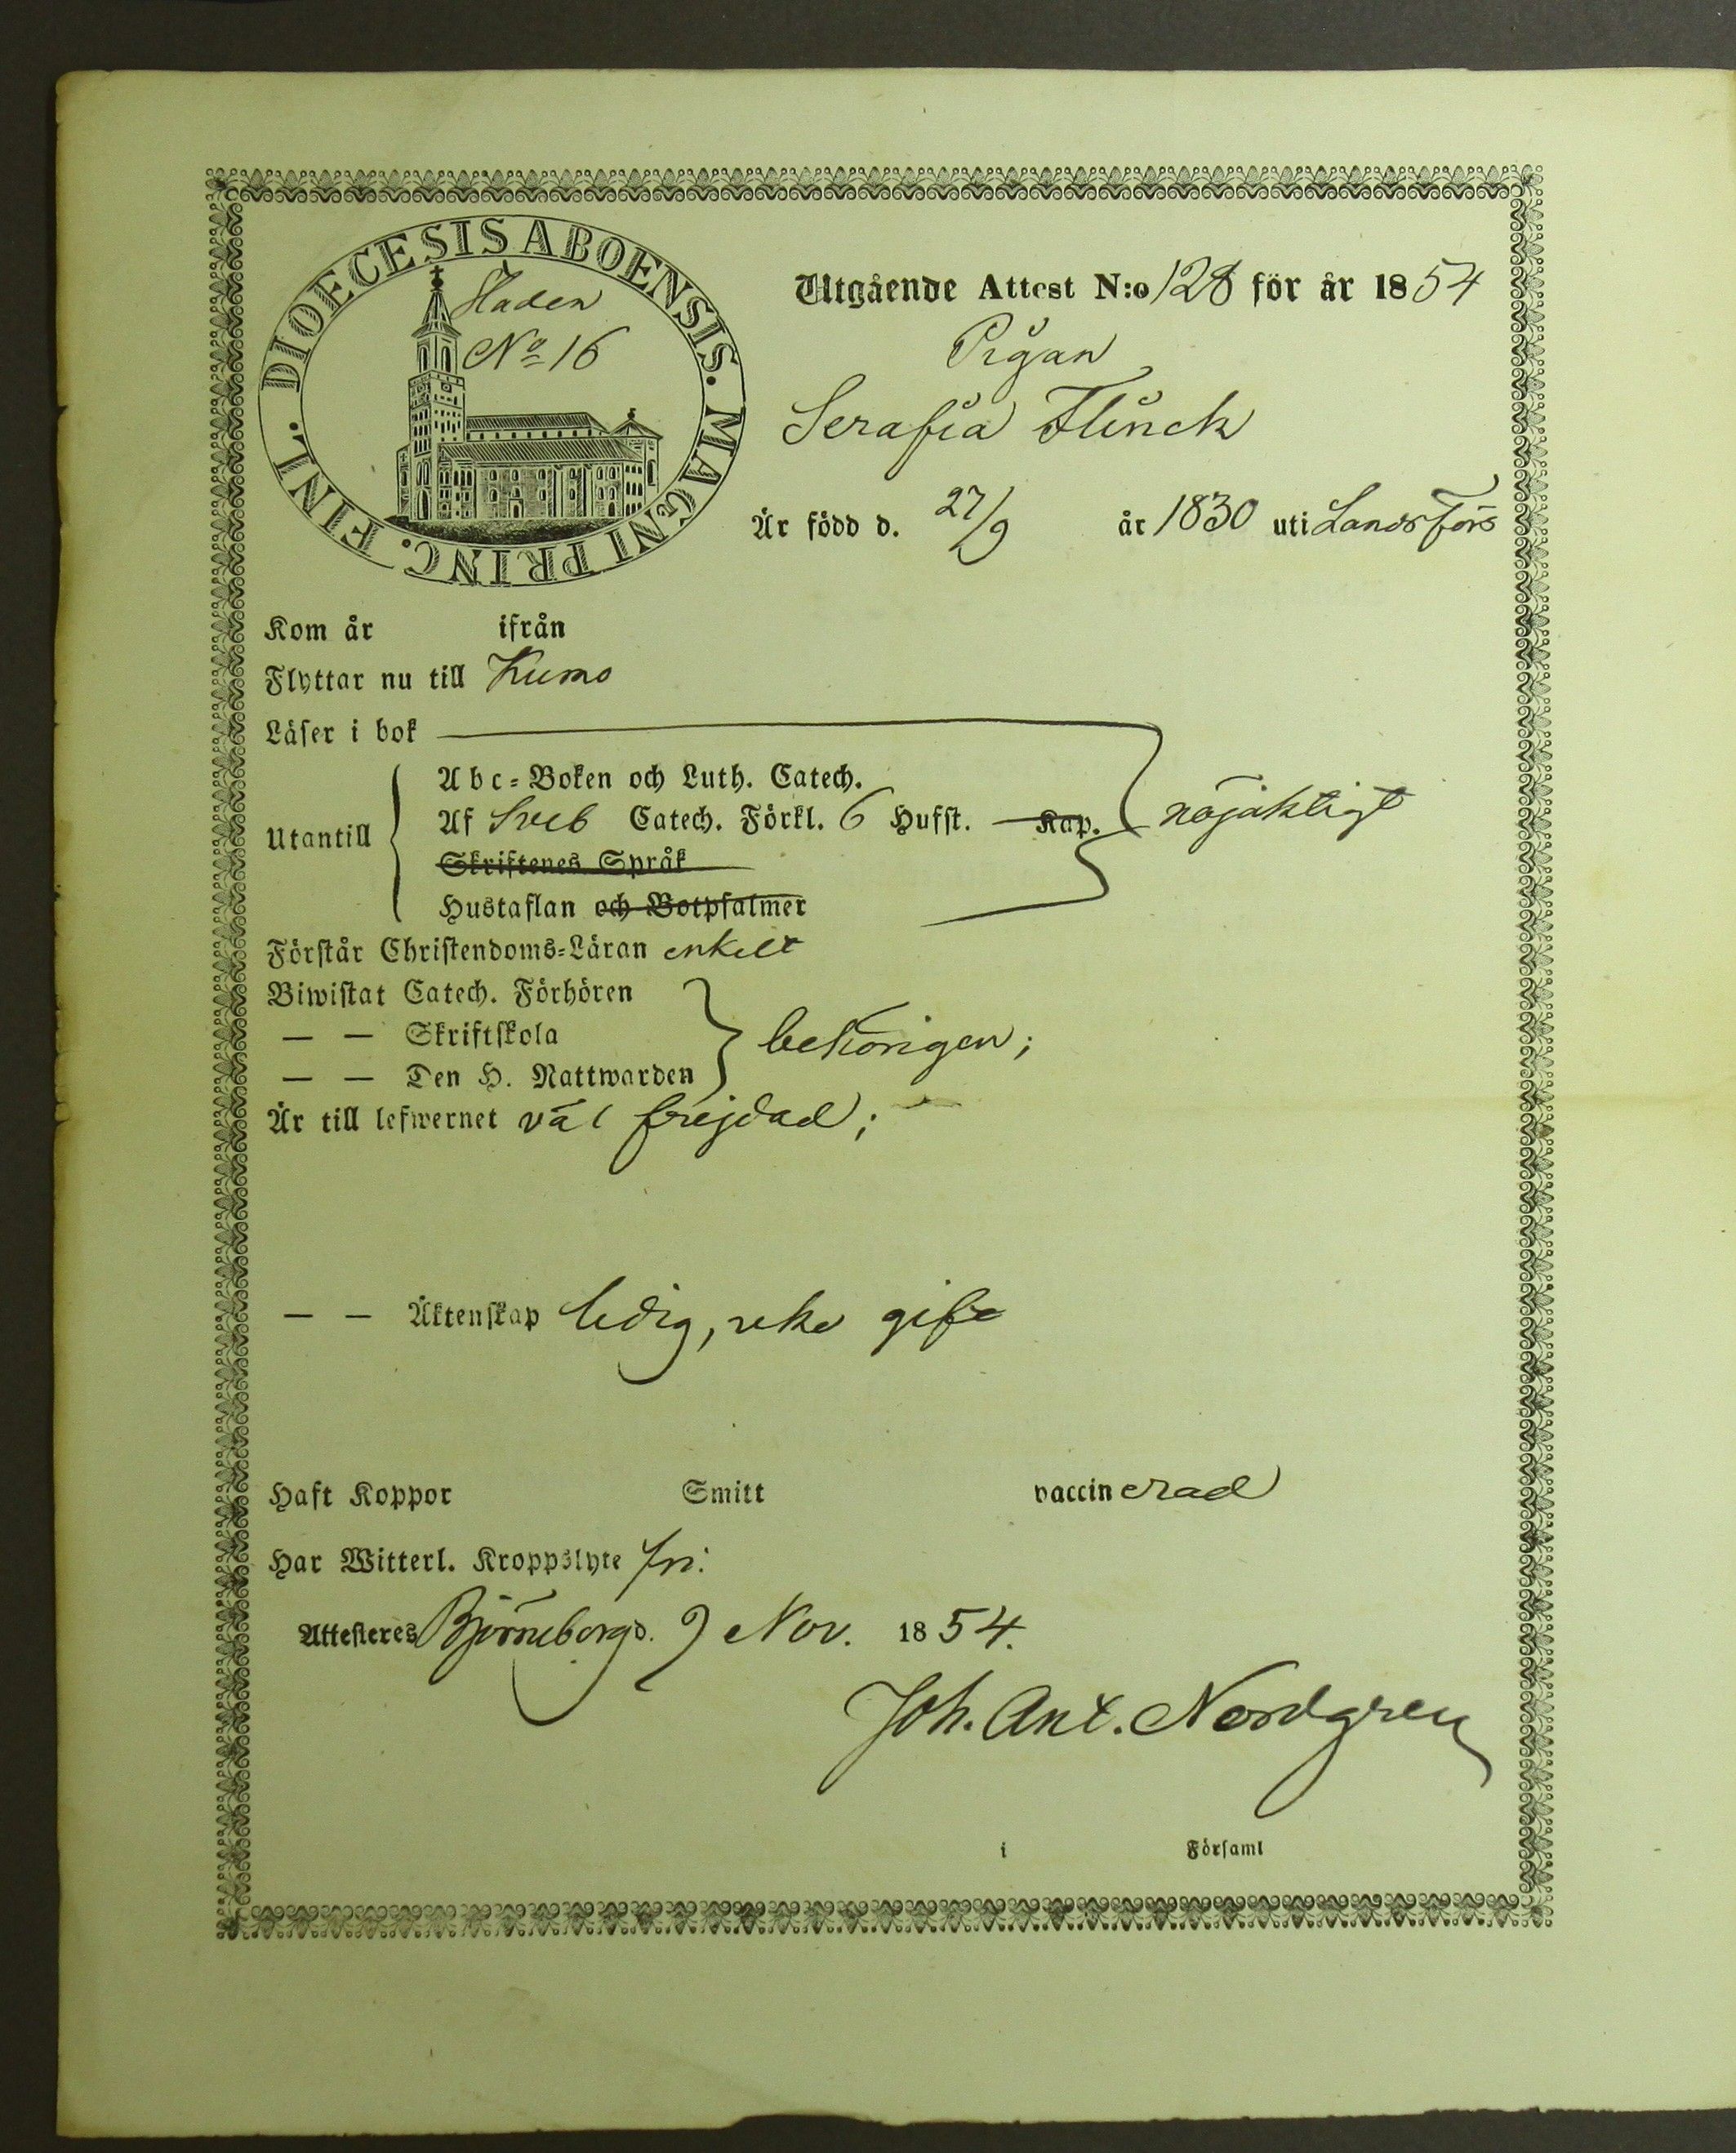 DIOECESIS ABOENSIS. MAGNI PRINC. FINL.
Staden
No 16
Utgående Attest N:o 128 för år 1854
Pigan
Serafia Flinck
Är född d. 27/9 år 1830 uti Landsförs
Kom år ifrån
Flyttar nu till Kumo
Läser i bok
Abc-Boken och Luth. Catech.
Utantill Af Sveb Catech. Förkl. 6 Hufst. Kap. nöjaktigt
Skriftenes Språk
Hustaflan och Botpsalmer
Förstår Christendoms-Läran enkelt
Biwistat Catech. Förhören
— — Skriftskola behörigen;
— — Den H. Nattwarden
Är till lefwernet väl frejdad;
— — Äktenskap ledig, gift
Haft Koppor Smitt vaccinerad
Har Witterl. Kroppslyte fri.
Attesteres Björneborg d. 9 Nov. 1854.
Joh. Ant. Nordgren
i Församl